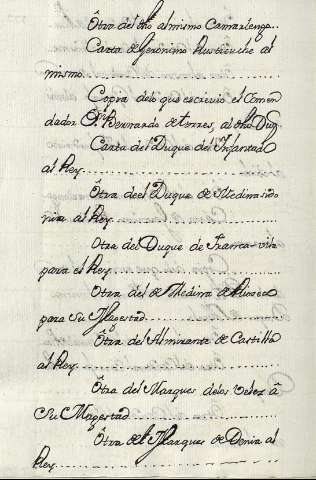 Ôtra del dho al mismo Camarlengo..
Carta de Gerónimo Rustieuche al
mismo
Copra delo que escrevio el Comen
dador Dⁿ. Bernardo de torres, al dho Duq.
Carta del Duque del Infantad
al Rey
Ôtra deel Duque de Medina sido
nia al Rey
Otra del Duque de Franca-vila
para el Rey
Ôtra del de Medina de Rioseco
para Su Magestad
Ôtra del Almirante de Castilla
al Rey
Ôtra del Marques delos Velez â
Su Magestad
Ôtra de el Marques de Denia al
Rey